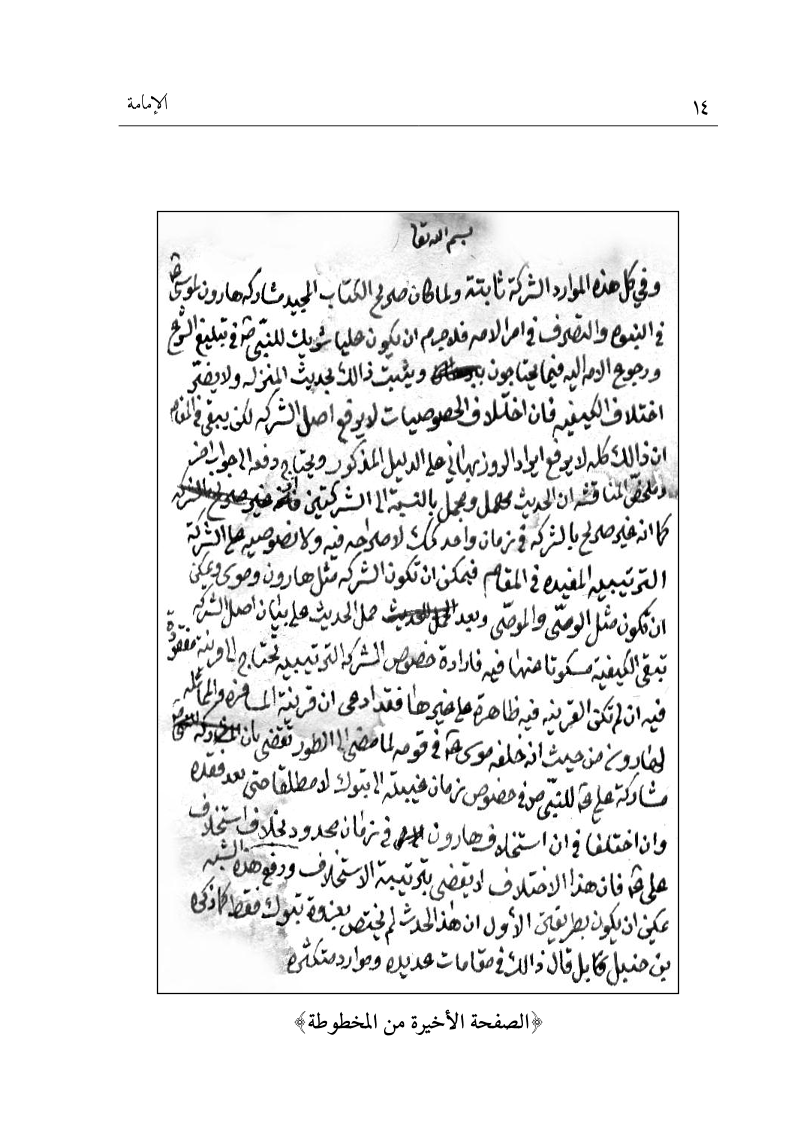 ١٤ الإمامة
بسم الله تعا
وفي كل هذه الموارد الشركة ثابتة ولما كان صريح الكتاب المجيد مشاركه هارون لموسى
في النبوه والتصرف في امر الامه فلا جرم ان يكون عليا شريك للنبي ص في تبليغ
ورجوع الامه اليه فيما يحتاجون ويثبت ذالك بحديث المنزله ولا يضر
اختلاف الكيفيه فان اختلاف الخصوصيات لا يرفع اصل الشركه لكن يبقى في المقام
ان ذالك كله لا يرفع ايراد الروزبهاني على الدليل المذكور ويحتاج دفعه الى جواب اخر
وملخص المناقشه ان الحديث مهمل ومجمل بالنسبة الى الشركتين
كما انه غير صريح بالشركه في زمان واحد كك لا صراحه فيه ولا نصوصيه على الشركة
الترتيبيه المفيده في المقام فيمكن ان تكون الشركه مثل هارون وموسى ويمكن
ان تكون مثل الوصّي والموصّي وبعد حمل الحديث على بيان اصل الشركه
تبقى الكيفية مسكوتا عنها فيه فارادة خصوص الشركه الترتيبيه تحتاج الى قرينة مفقودة
فيه ان لم تكن القرينه فيه ظاهرة على غيرها فقد ادعى ان قرينة
لهارون من حيث انه خلفه موسى في قومه لما مضى الى الطور تقضي بان
مشاركة علي للنبي ص في خصوص زمان غيبته الى تبوك لا مطلقا حتى بعد فقده
وان اختلفا في ان استخلاف هارون في زمان محدود بخلاف استخلاف
علي فان هذا الاختلاف لا يقضي بترتيبية الاستخلاف ودفع هذه الشبه
يمكن ان يكون بطريقين الأول ان هذا الحدث لم يختص بغزوة تبوك فقط كما ذكره
بن حنبل بل قال ذالك في مقامات عديده وموارد متكثره
﴿الصفحة الأخيرة من المخطوطة﴾